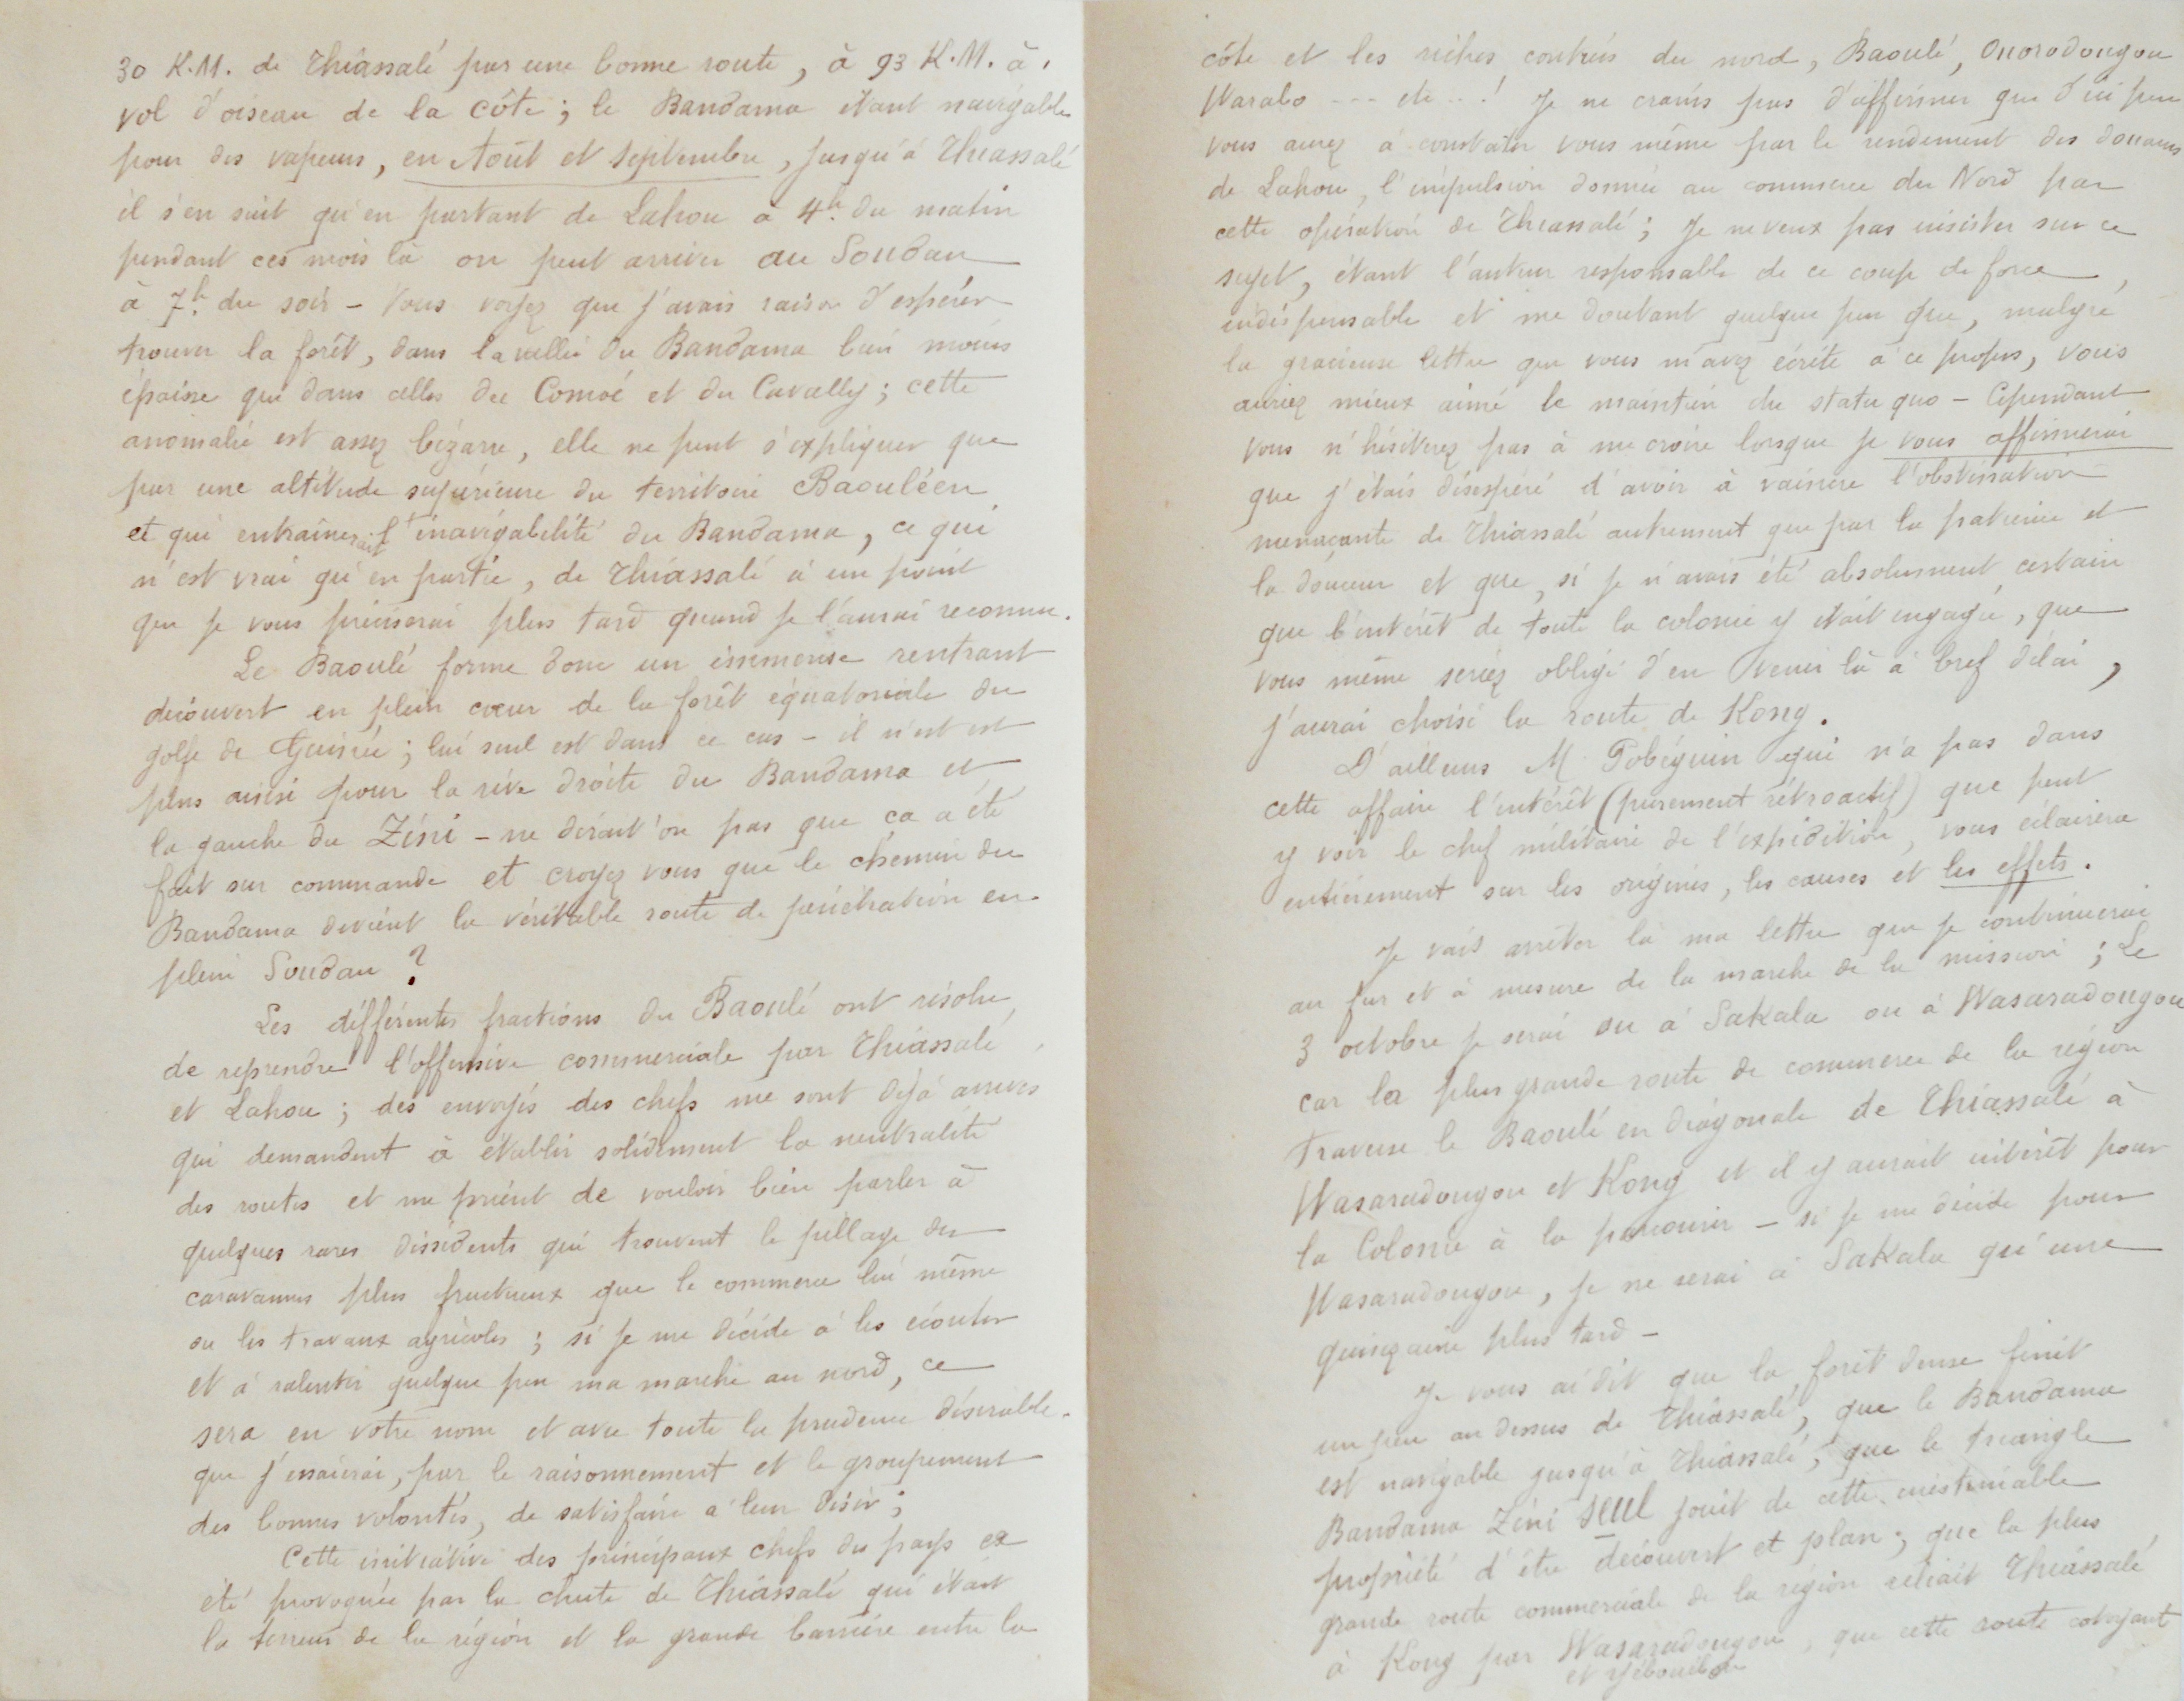 30 K.M. de Thiassalé par une bonne route, à 93 K.M. à
vol d'oiseau de la côte ; le Bandama étant navigable
pour des vapeurs, en Août et Septembre, jusqu'à Thiassalé
il s'en suit qu'en partant de Lahou à 4h. du matin
pendant ces mois là on peut arriver au Soudan
à 7h. du soir - Vous voyez que j'avais raison d'espérer
trouver la forêt, dans la vallée du Bandama bien moins
épaisse que dans celles du Comoé et du Cavally ; cette
anomalie est assez bizarre, elle ne peut s'expliquer que
par une altitude supérieure du territoire Baouléen
et qui entraînerait l'inavigabilité du Bandama, ce qui
n'est vrai qu'en partie, de Thiassalé à un point
que je vous préciserai plus tard quand je l'aurai reconnu.
Le Baoulé forme donc un immense rentrant
découvert en plein cœur de la forêt équatoriale du
golfe de Guinée ; lui seul est dans ce cas - il n'en est
plus ainsi pour la rive droite du Bandama et
la gauche du Zini - ne dirait'on pas que ça a été
fait sur commande et croyez vous que le chemin du
Bandama devient la véritable route de pénétration en
plein Soudan ?
Les différentes fractions du Baoulé ont résolu,
de reprendre l'offensive commerciale par Thiassalé
et Lahou ; des envoyés des chefs me sont déjà arrivés
qui demandent à établir solidement la neutralité
des routes et me prient de vouloir bien parler à
quelques rares dissidents qui trouvent le pillage des
caravanes plus fructueux que le commerce lui même
ou les travaux agricoles ; si je me décide à les écouter
et à ralentir quelque peu ma marche au nord, ce
sera en votre nom et avec toute la prudence désirable.
que j'essaierai, par le raisonnement et le groupement
des bonnes volontés, de satisfaire à leur désir ;
Cette initiative des principaux chefs du pays a
été provoquée par la chute de Thiassalé qui était
la terreur de la région et la grande barrière entre la
côte et les riches contrées du nord, Baoulé, Ouorodougou
Warabo --- etc...! Je ne crains pas d'affirmer que d'ici peu
vous aurez à constater vous même par le rendement des douanes
de Lahou, l'impulsion donnée au commerce du Nord par
cette opération de Thiassalé ; Je ne veux pas insister sur ce
sujet, étant l'auteur responsable de ce coup de force,
indispensable et me doutant quelque peu que, malgré
la gracieuse lettre que vous m'avez écrite à ce propos, vous
auriez mieux aimé le maintien du statu quo - Cependant
vous n'hésiterez pas à me croire lorsque je vous affirmerai
que j'étais désespéré d'avoir à vaincre l'obstination
menaçante de Thiassalé autrement que par la patience et
la douceur et que, si je n'avais été absolument certain
que l'intérêt de toute la colonie y était engagée, que
vous même seriez obligé d'en venir là à bref délai,
j'aurai choisi la route de Kong.
D'ailleurs M. Pobéguin qui n'a pas dans
cette affaire l'intérêt (purement rétroactif) que peut
y voir le chef militaire de l'expédition, vous éclairera
entièrement sur les origines, les causes et les effets.
Je vais arrêter là ma lettre que je continuerai
au fur et à mesure de la marche de la mission ; Le
3 octobre je serai ou à Sakala ou à Wasaradougou
car la plus grande route de commerce de la région
traverse le Baoulé en diagonale de Thiassalé à
Wasaradougou et Kong et il y aurait intérêt pour
la Colonie à la parcourir - si je me décide pour
Wasaradougou, je ne serai à Sakala qu'une
quinzaine plus tard -
Je vous ai dit que la forêt dense finit
un peu au dessus de Thiassalé, que le Bandama
est navigable jusqu'à Thiassalé, que le triangle
Bandama Zini seul jouit de cette inestimable
propriété d'être découvert et plan ; que la plus
grande route commerciale de la région reliait Thiassalé
à Kong par Wasaradougou, que cette route cotoyant
et